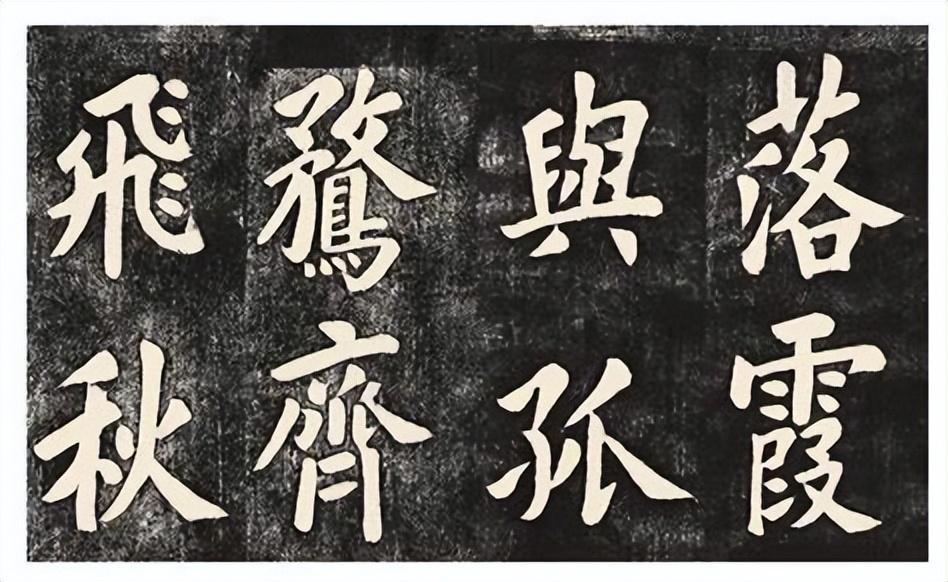 落霞
與孤
鶩齊
飛秋